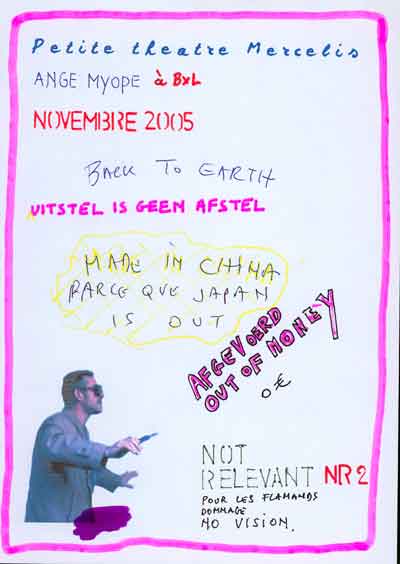 Petite theatre Mercelis
ANGE MYOPE à BXL
NOVEMBRE 2005
BACK TO EARTH
UITSTEL IS GEEN AFSTEL
MADE IN CHINA
PARCE QUE JAPAN
IS OUT
AFGEVOERD
OUT OF MONEY
0 €
NOT
RELEVANT NR 2
POUR LES FLAMANDS
DOMMAGE
NO VISION.